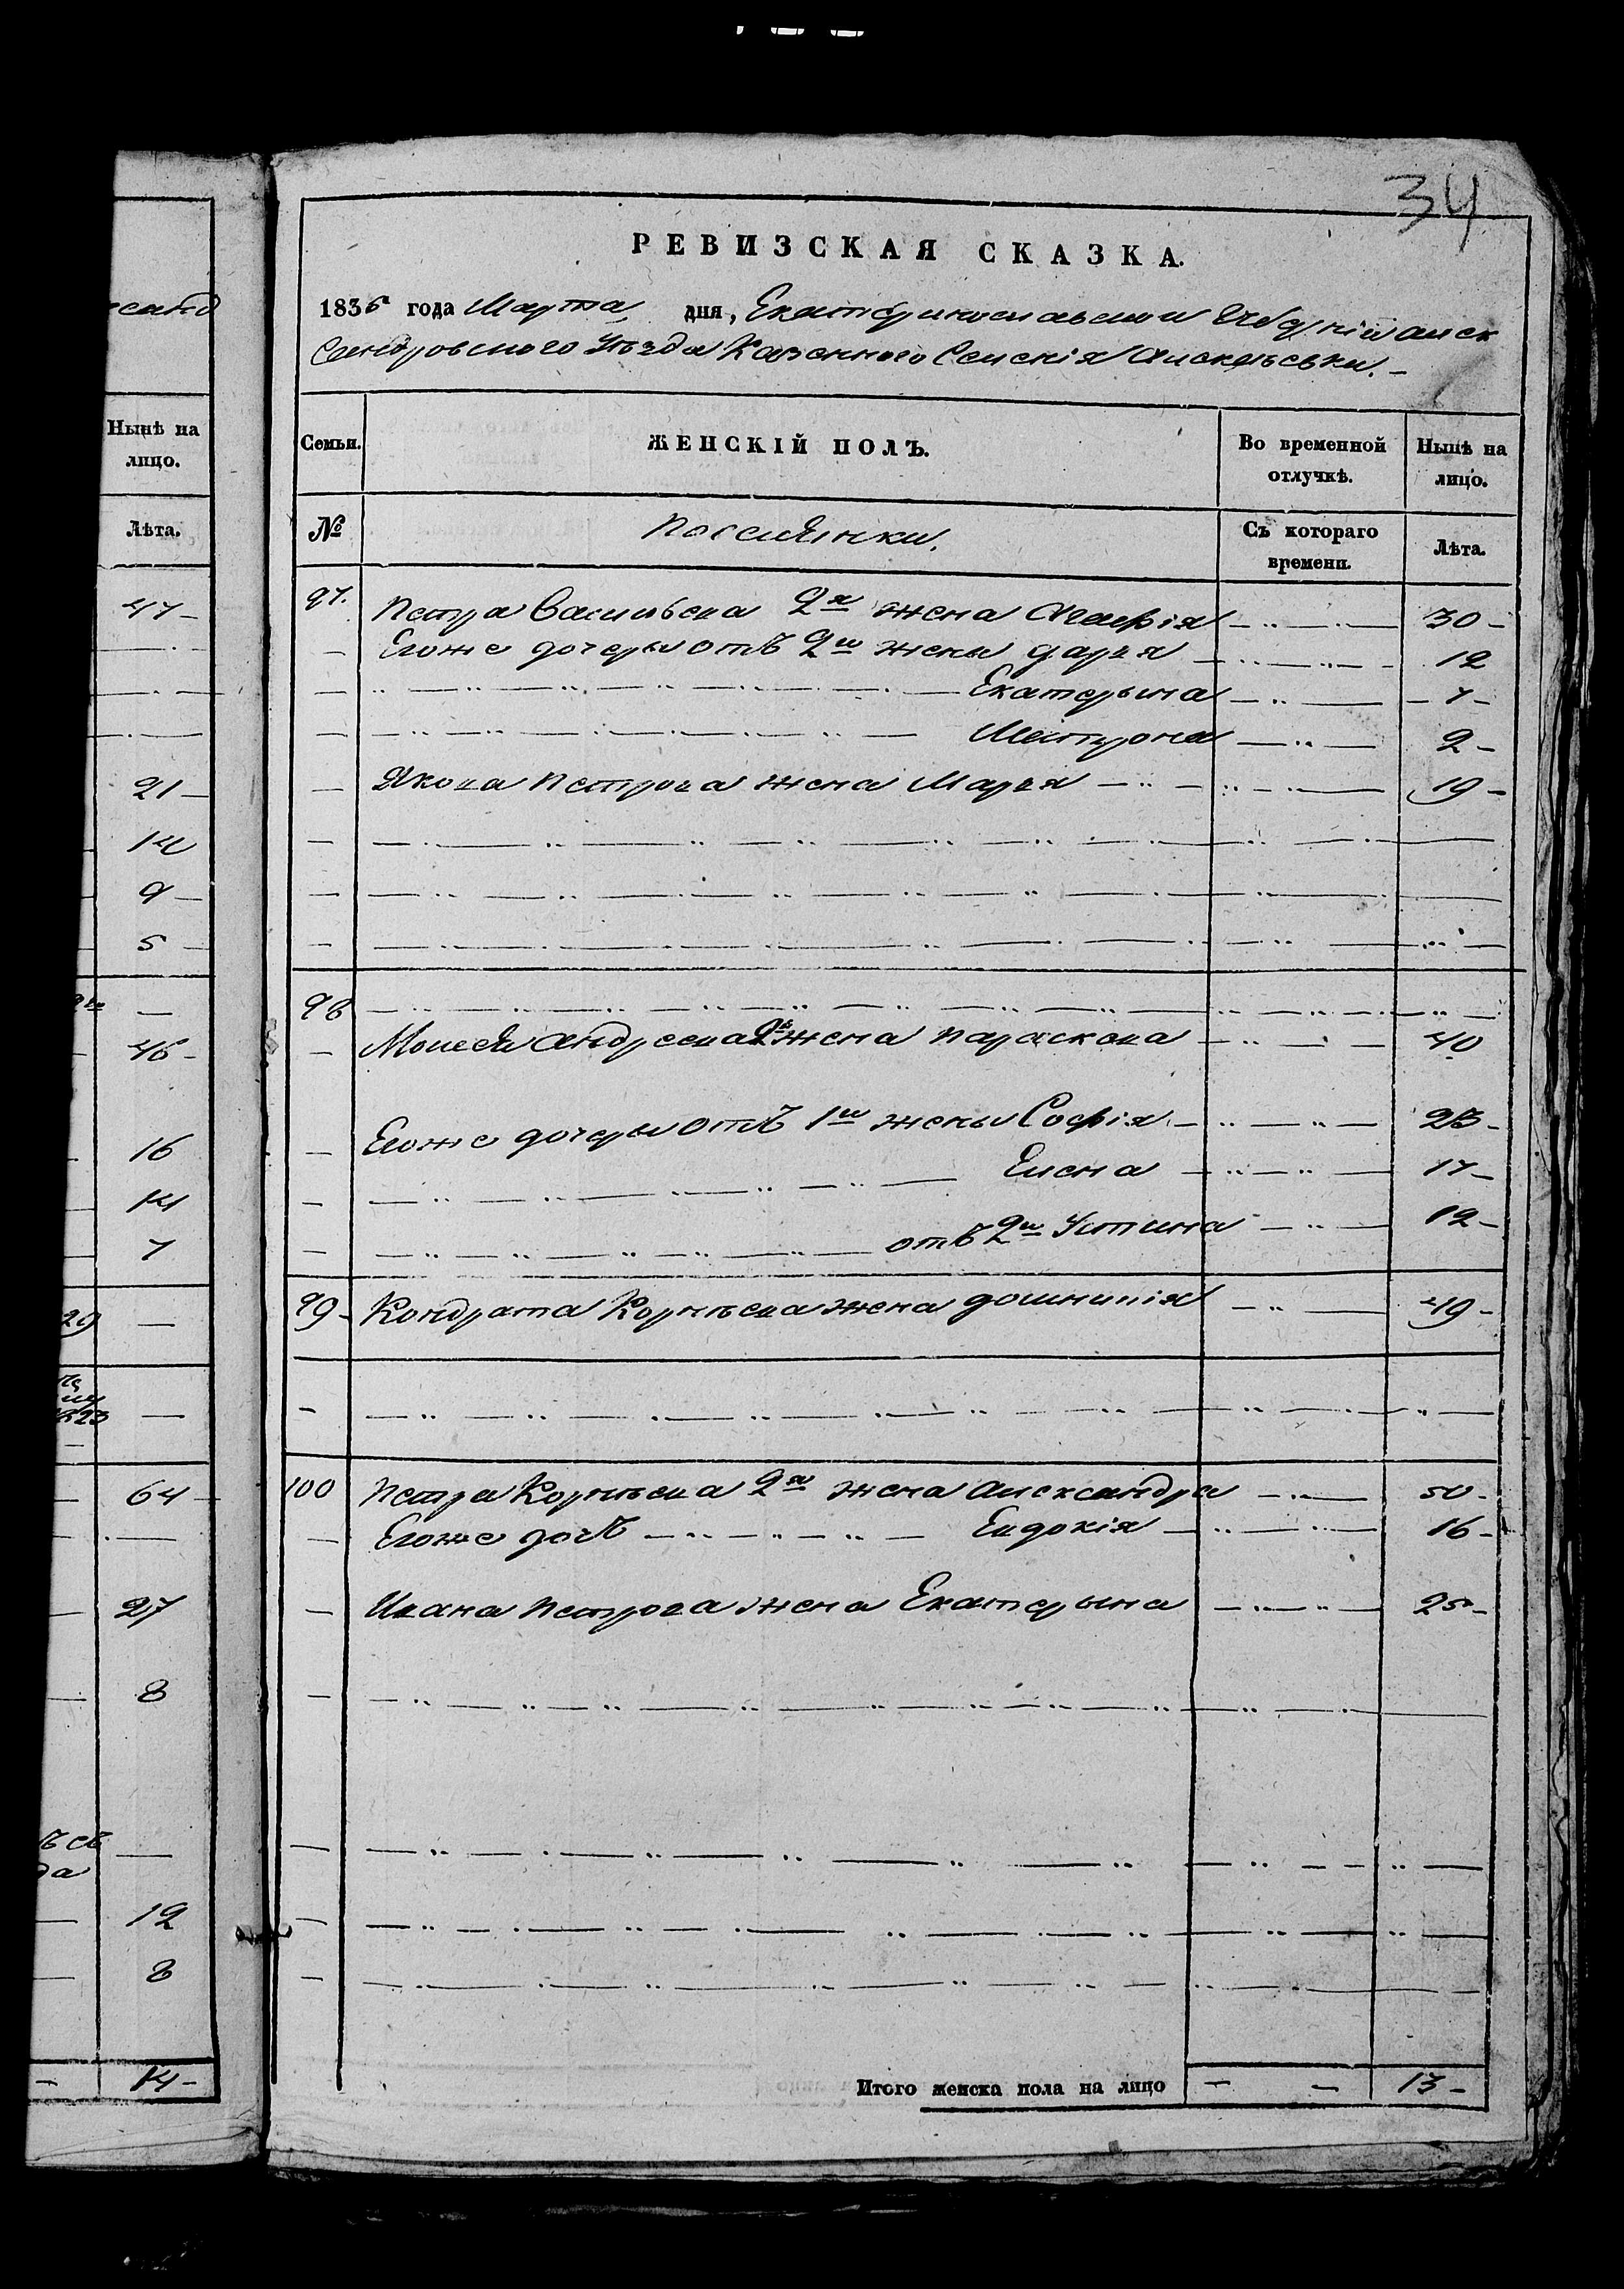 сапд
Нынѣ на
лицо.
Лѣта.
47 -
21 -
14
9 -
5 -
46 -
16
14
7
29
1823
64 -
27
8
ъ съ
да
12
8
14 -
34
РЕВИЗСКАЯ СКАЗКА.
1836 года Марта дня, Екатеринославской Губерніи Алек
сандровского Уѣзда Казенного Селенія Алексѣевки. -
Семьи.
ЖЕНСКІЙ ПОЛЪ.
Во временной
отлучкѣ.
Нынѣ на
лицо.
№
Поселянки.
Съ котораго
времени.
Лѣта.
97. Петра Васильева 2я жена Агафія 30 -
Егоже дочери отъ 2й жены Дарья 12
Екатерына 7 -
Матрона 2 -
Якова Петрова жена Марья 19 -
98
Моисея Андреева 2я жена Параскева 40
Егоже дочери отъ 1й жены Софія 23 -
Елена 17 -
отъ 2й Устина 12 -
99 - Кондрата Корнѣева жена Домникія 49 -
100 Петра Корнѣева 2я жена Александра 50 -
Егоже дочь Евдокія 16 -
Ивана Петрова жена Екатерына 25 -
Итого женска пола на лицо - - 13 -